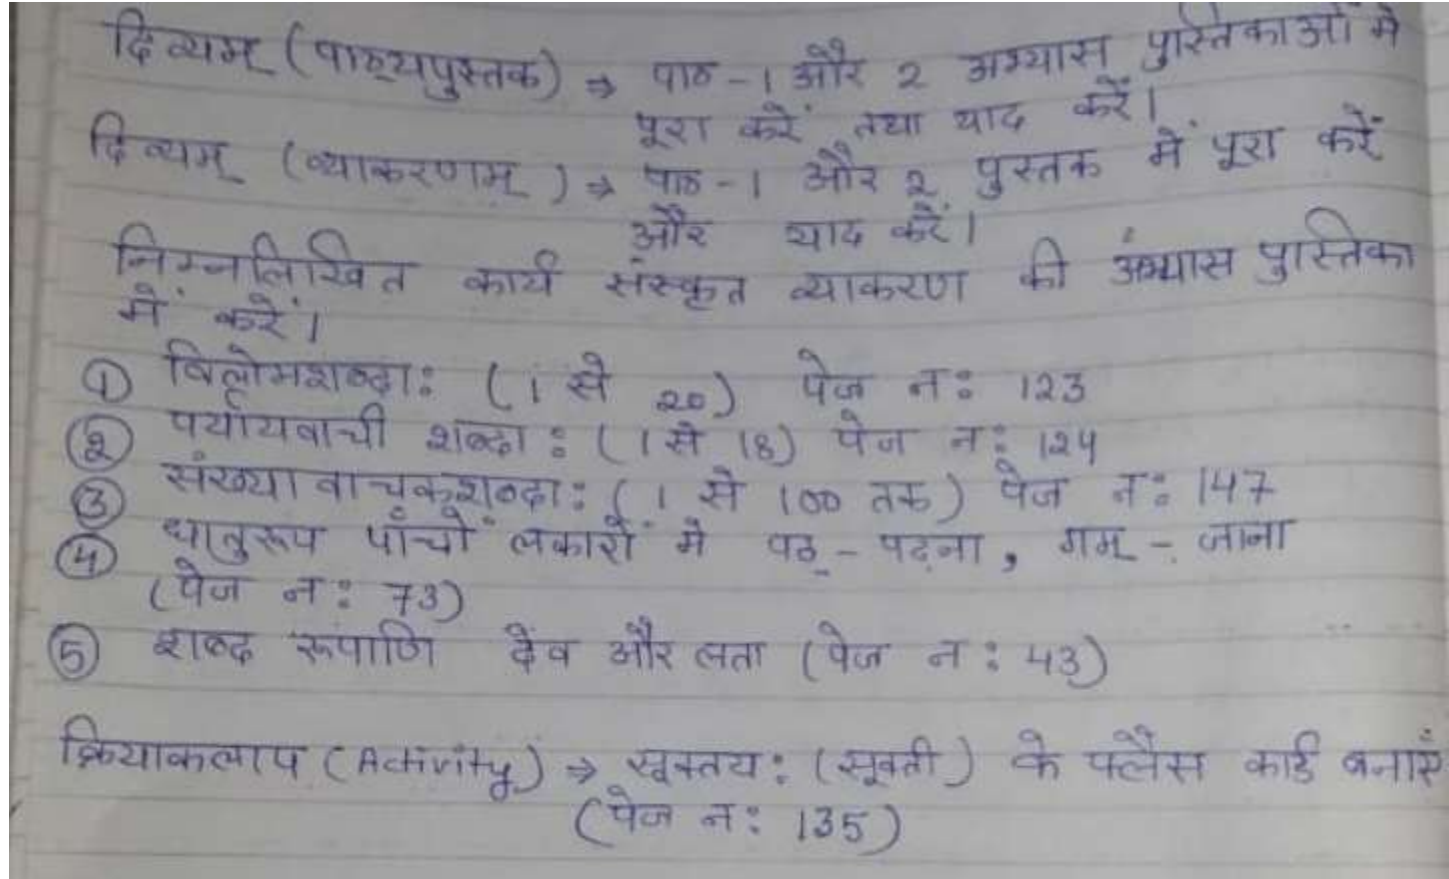 दिव्यम् (पाठ्यपुस्तक) ⇒ पाठ -1 और 2 अभ्यास पुस्तिकाओं में
पूरा करें तथा याद करें।
दिव्यम् (व्याकरणम्) ⇒ पाठ -1 और 2 पुस्तक में पूरा करें
और याद करें।
निम्नलिखित कार्य संस्कृत व्याकरण की अभ्यास पुस्तिका
में करें।
① विलोमशब्दा: (1 से 20) पेज न: 123
② पर्यायवाची शब्दा: (1 से 18) पेज न: 124
③ संख्यावाचकशब्दा: (1 से 100 तक) पेज न: 147
④ धातुरूप पाँचों लकारों में पठ् - पढ़ना, गम् - जाना
(पेज न: 73)
⑤ शब्द रूपाणि देव और लता (पेज न: 43)
क्रियाकलाप (Activity) ⇒ सूक्तय: (सूक्ती) के फ्लैस कार्ड बनाएं
(पेज न: 135)